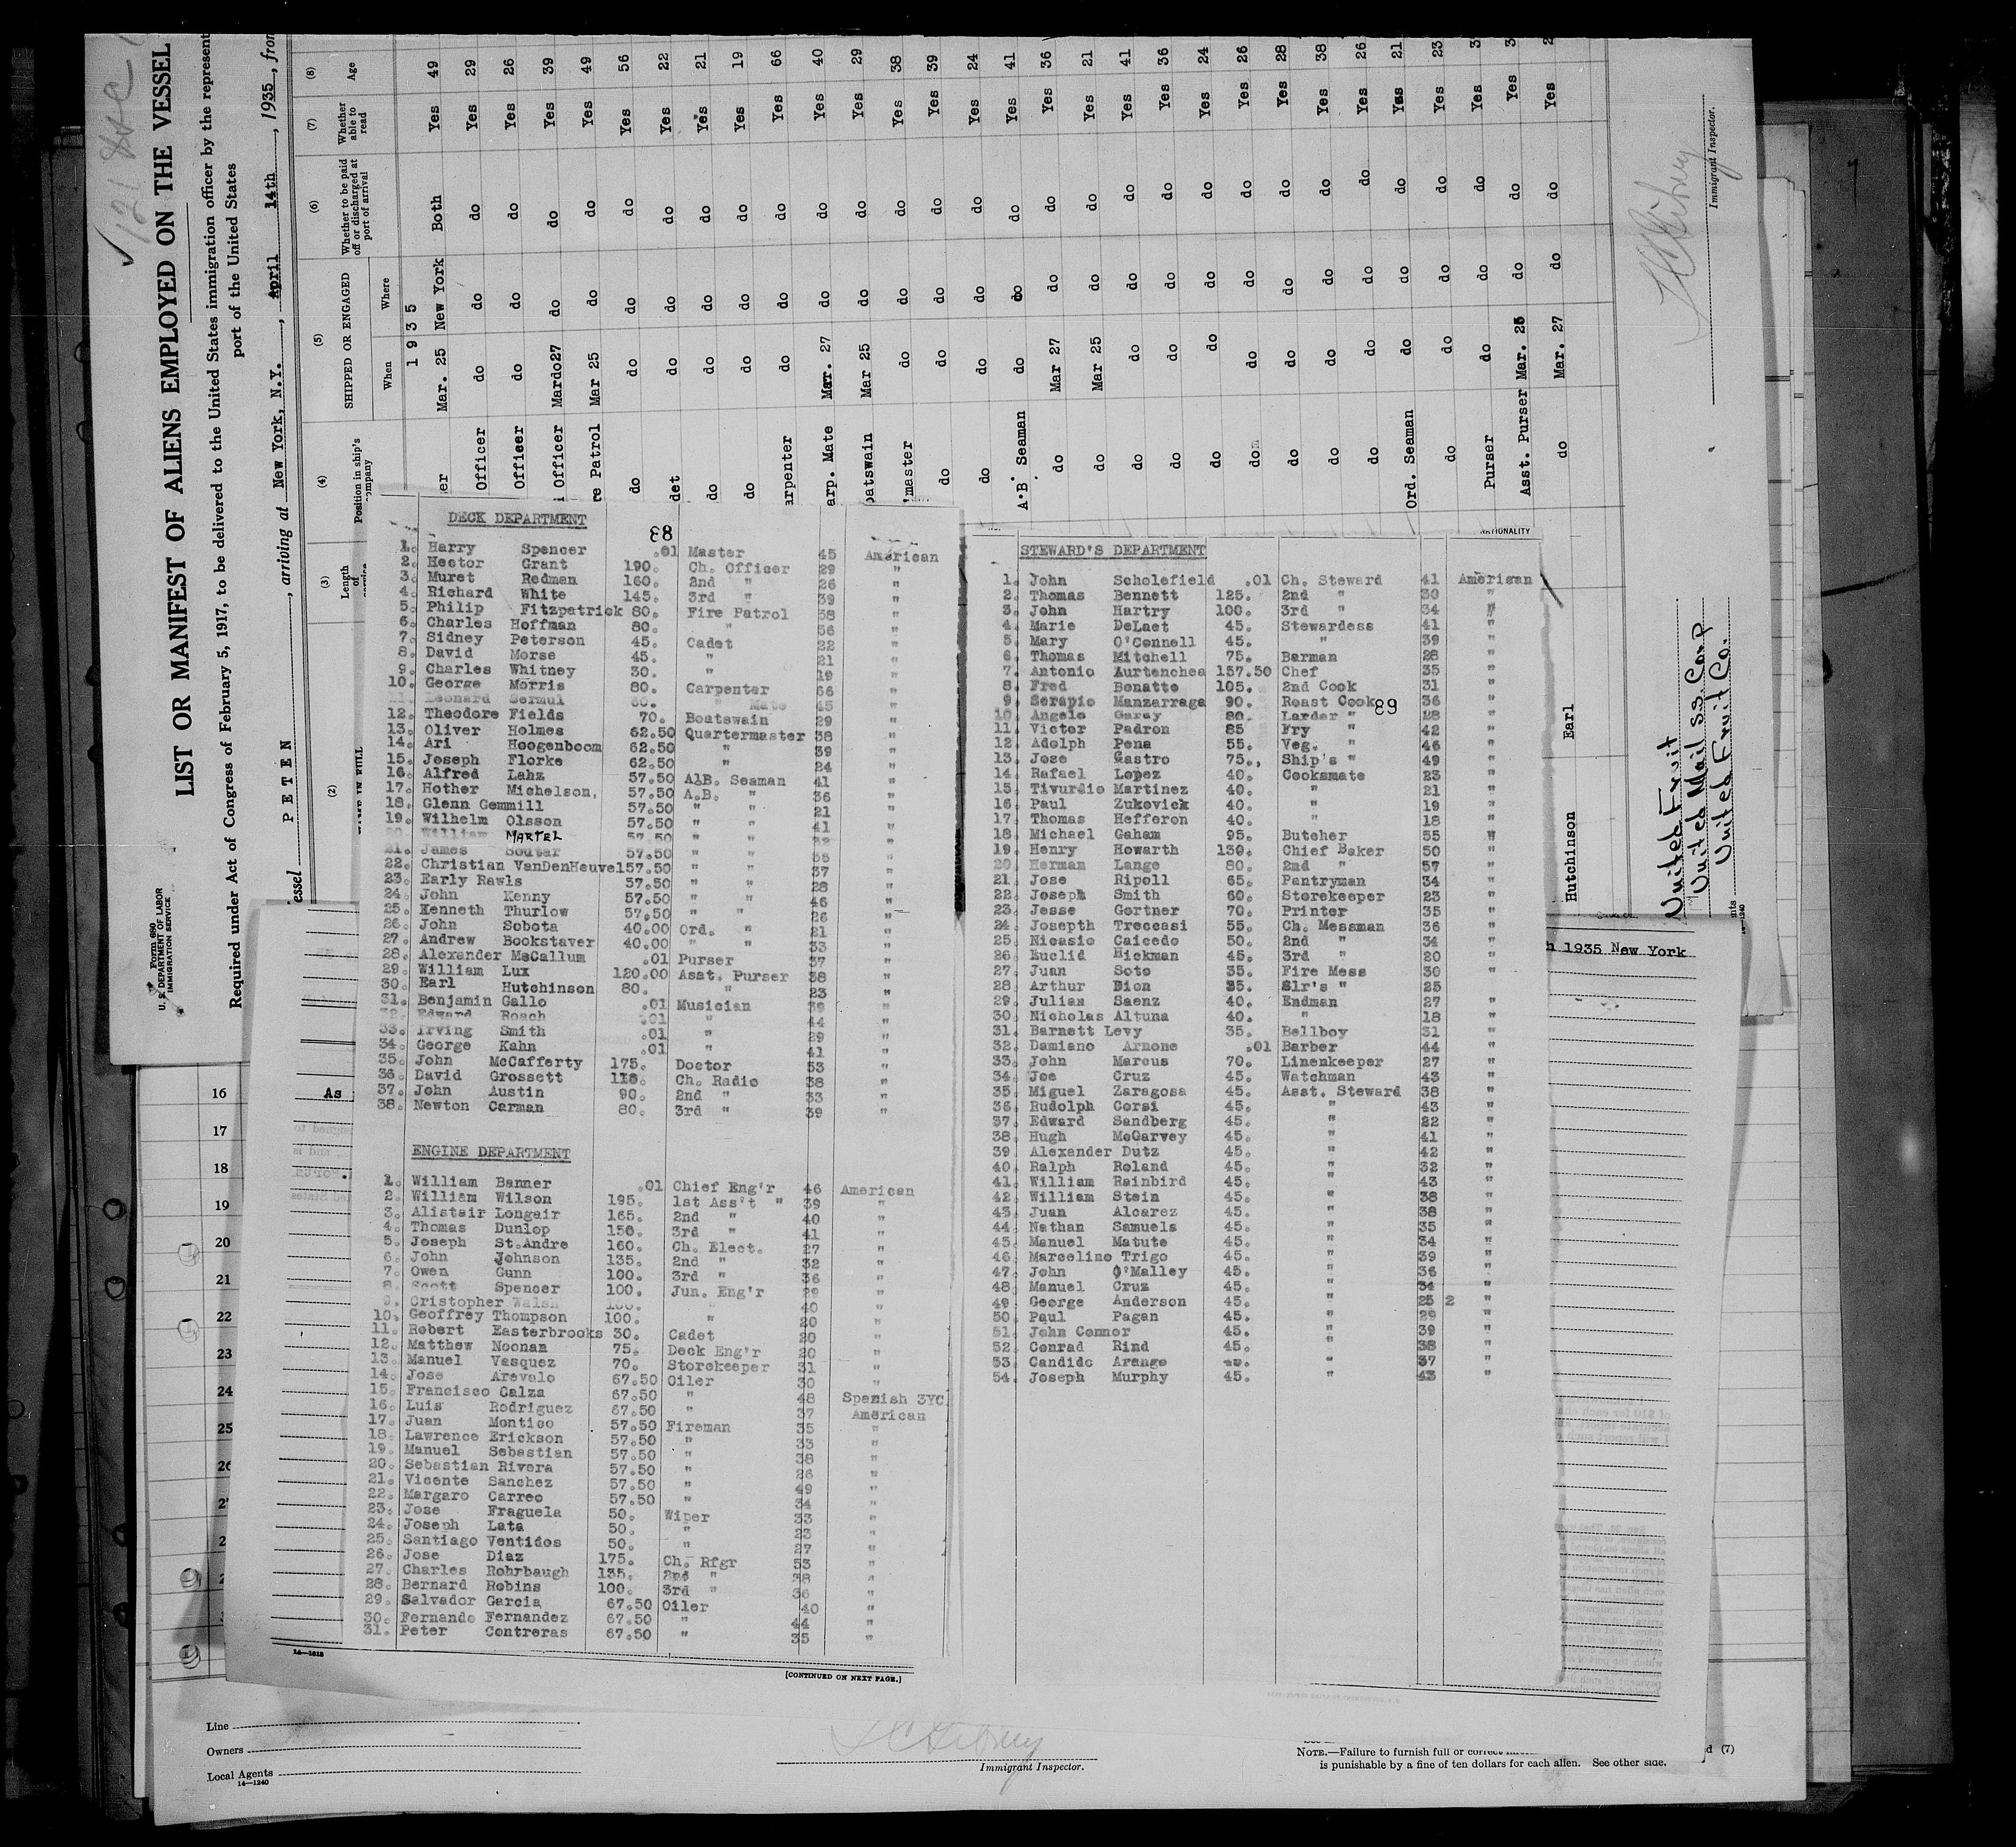 Form 680
U. S. DEPARTMENT OF LABOR
IMMIGRATION SERVICE
LIST OR MANIFEST OF ALIENS EMPLOYED ON THE VESSEL
Required under Act of Congress of February 5, 1917, to be delivered to the United States immigration officer by the represent
port of the United States
essel PETEN, arriving at New York, N.Y., April 14th, 1935, from
(2) (3) (4) (5) (6) (7) (8)
Length of
Position in ship's company
SHIPPED OR ENGAGED
When Where
Whether to be paid off or discharged at port of arrival
Whether able to read
Age
1935
er Mar. 25 New York Both Yes 49
Officer do do do Yes 29
Officer do do do Yes 26
Officer Mardo27 do do Yes 39
re Patrol Mar 25 do do Yes 49
do do do do Yes 56
det do do do Yes 22
do do do do Yes 21
do do do do Yes 19
arpenter do do do Yes 66
arp. Mate Mar. 27 do do Yes 40
oatswain Mar 25 do do Yes 29
master do do do Yes 38
do do do do Yes 39
do do do do Yes 24
A.B. Seaman do do do Yes 41
do Mar 27 do do Yes 36
do Mar 25 do do Yes 21
do do do do Yes 41
do do do do Yes 36
do do do do Yes 24
do do do do Yes 26
do do do do Yes 28
do do do do Yes 38
do do do do Yes 26
Ord. Seaman do do do Yes 21
do do do do Yes 23
Purser do do do Yes 3
Asst. Purser Mar. 25 do do Yes 3
do Mar. 27 do do Yes 2
Hutchinson Earl
Immigrant Inspector.
United Fruit
United Mail SS. Corp
United Fruit Co.
nts
14—1240
DECK DEPARTMENT
88
1. Harry Spencer .01 Master 45 American
2. Hector Grant 190. Ch. Officer 29 "
3. Muret Redman 160. 2nd " 26 "
4. Richard White 145. 3rd " 39 "
5. Philip Fitzpatrick 80. Fire Patrol 38 "
6. Charles Hoffman 80. " 56 "
7. Sidney Peterson 45. Cadet 22 "
8. David Morse 45. " 21 "
9. Charles Whitney 30. " 19 "
10. George Morris 80. Carpenter 66 "
11. Leonard Sermul 60. " Mate 45 "
12. Theodore Fields 70. Boatswain 29 "
13. Oliver Holmes 62.50 Quartermaster 38 "
14. Ari Hoogenboom 62.50 " 39 "
15. Joseph Florke 62.50 " 24 "
16. Alfred Lahz 57.50 A.B. Seaman 41 "
17. Hother Michelson, 57.50 A.B. " 36 "
18. Glenn Gemmill 57.50 " " 21 "
19. Wilhelm Olsson 57.50 " " 41 "
20. William MARTEL 57.50 " " 32 "
21. James Soutar 57.50 " " 36 "
22. Christian VanDenHeuvel57.50 " " 37 "
23. Early Rawls 57.50 " " 28 "
24. John Kenny 57.50 " " 46 "
25. Kenneth Thurlow 57.50 " " 26 "
26. John Sobota 40.00 Ord. " 21 "
27. Andrew Bookstaver 40.00 " " 33 "
28. Alexander McCallum .01 Purser 37 "
29. William Lux 120.00 Asst. Purser 38 "
30. Earl Hutchinson 80. " 23 "
31. Benjamin Gallo .01 Musician 39 "
32. Edward Roach .01 " 44 "
33. Irving Smith .01 " 29 "
34. George Kahn .01 " 41 "
35. John McCafferty 175. Doctor 53 "
36. David Grossett 118. Ch. Radio 38 "
37. John Austin 90. 2nd " 33 "
38. Newton Carman 80. 3rd " 39 "
ENGINE DEPARTMENT
1. William Banner .01 Chief Eng'r 46 American
2. William Wilson 195. 1st Ass't " 39 "
3. Alistair Longair 165. 2nd " 40 "
4. Thomas Dunlop 150. 3rd " 41 "
5. Joseph St.Andre 160. Ch. Elect. 27 "
6. John Johnson 135. 2nd " 32 "
7. Owen Gunn 100. 3rd " 36 "
8. Scott Spencer 100. Jun. Eng'r 29 "
9. Cristopher Walsh 100. " 40 "
10. Geoffrey Thompson 100. " 20 "
11. Robert Easterbrooks 30. Cadet 20 "
12. Matthew Noonan 75. Deck Eng'r 20 "
13. Manuel Vasquez 70. Storekeeper 31 "
14. Jose Arevalo 67.50 Oiler 30 "
15. Francisco Calza 67.50 " 48 Spanish 3YC
16. Luis Rodriguez 67.50 " 37 American
17. Juan Montico 57.50 Fireman 35 "
18. Lawrence Erickson 57.50 " 33 "
19. Manuel Sebastian 57.50 " 38 "
20. Sebastian Rivera 57.50 " 26 "
21. Vicente Sanchez 57.50 " 49 "
22. Margaro Carreo 57.50 " 34 "
23. Jose Fraguela 50. Wiper 33 "
24. Joseph Lata 50. " 23 "
25. Santiago Ventidos 50. " 27 "
26. Jose Diaz 175. Ch. Rfgr 53 "
27. Charles Rohrbaugh 135. 2nd " 38 "
28. Bernard Robins 100. 3rd " 36 "
29. Salvador Garcia 67.50 Oiler 40 "
30. Fernando Fernandez 67.50 " 44 "
31. Peter Contreras 67.50 " 35 "
NATIONALITY
STEWARD'S DEPARTMENT
1. John Scholefield .01 Ch. Steward 41 American
2. Thomas Bennett 125. 2nd " 30 "
3. John Hartry 100. 3rd " 34 "
4. Marie DeLaet 45. Stewardess 41 "
5. Mary O'Connell 45. " 39 "
6. Thomas Mitchell 75. Barman 28 "
7. Antonio Aurtenchea 157.50 Chef 35 "
8. Fred Bonatto 105. 2nd Cook 31 "
9. Serapio Manzarraga 90. Roast Cook 36 "
89
10. Angelo Garay 80. Larder " 28 "
11. Victor Padron 85 Fry " 42 "
12. Adolph Pena 55. Veg. " 46 "
13. Jose Castro 75., Ship's " 49 "
14. Rafael Lopez 40. Cooksmate 23 "
15. Tivurdio Martinez 40. " 21 "
16. Paul Zukovick 40. " 19 "
17. Thomas Hefferon 40. " 18 "
18. Michael Gaham 95. Butcher 55 "
19. Henry Howarth 130. Chief Baker 50 "
20. Herman Lange 80. 2nd " 57 "
21. Jose Ripoll 65. Pantryman 34 "
22. Joseph Smith 60. Storekeeper 23 "
23. Jesse Gortner 70. Printer 35 "
24. Josepth Treccasi 55. Ch. Messman 36 "
25. Nicasio Caicedo 50. 2nd " 34 "
26. Euclid Hickman 45. 3rd " 20 "
27. Juan Soto 35. Fire Mess 30 "
28. Arthur Dion 35. Slr's " 25
29. Julian Saenz 40. Endman 27 "
30. Nicholas Altuna 40. " 18 "
31. Barnett Levy 35. Bellboy 31 "
32. Damiano Arnone .01 Barber 44 "
33. John Marcus 70. Linenkeeper 27 "
34. Joe Cruz 45. Watchman 43 "
35. Miguel Zaragosa 45. Asst. Steward 38 "
36. Rudolph Corsi 45. " 43 "
37. Edward Sandberg 45. " 22 "
38. Hugh McGarvey 45. " 41 "
39 Alexander Dutz 45. " 42 "
40. Ralph Roland 45. " 32 "
41. William Rainbird 45. " 43 "
42. William Stein 45. " 38 "
43. Juan Alcarez 45. " 38 "
44. Nathan Samuels 45. " 35 "
45. Manuel Matute 45. " 34 "
46. Marcelino Trigo 45. " 39 "
47. John O'Malley 45. " 36 "
48. Manuel Cruz 45. " 34 "
49. George Anderson 45. " 25 2 "
50. Paul Pagan 45. " 29 "
51. John Connor 45. " 39 "
52. Conrad Rind 45. " 38 "
53. Candido Arango " 37 "
54. Joseph Murphy 45. " 43 "
h 1935 New York
16 As
17
18
19
20
21
22
23
24
25
14—1212
[CONTINUED ON NEXT PAGE.]
Line
Owners
Local Agents
14—1240
Immigrant Inspector.
NOTE.—Failure to furnish full or correct
d (7)
is punishable by a fine of ten dollars for each alien. See other side.